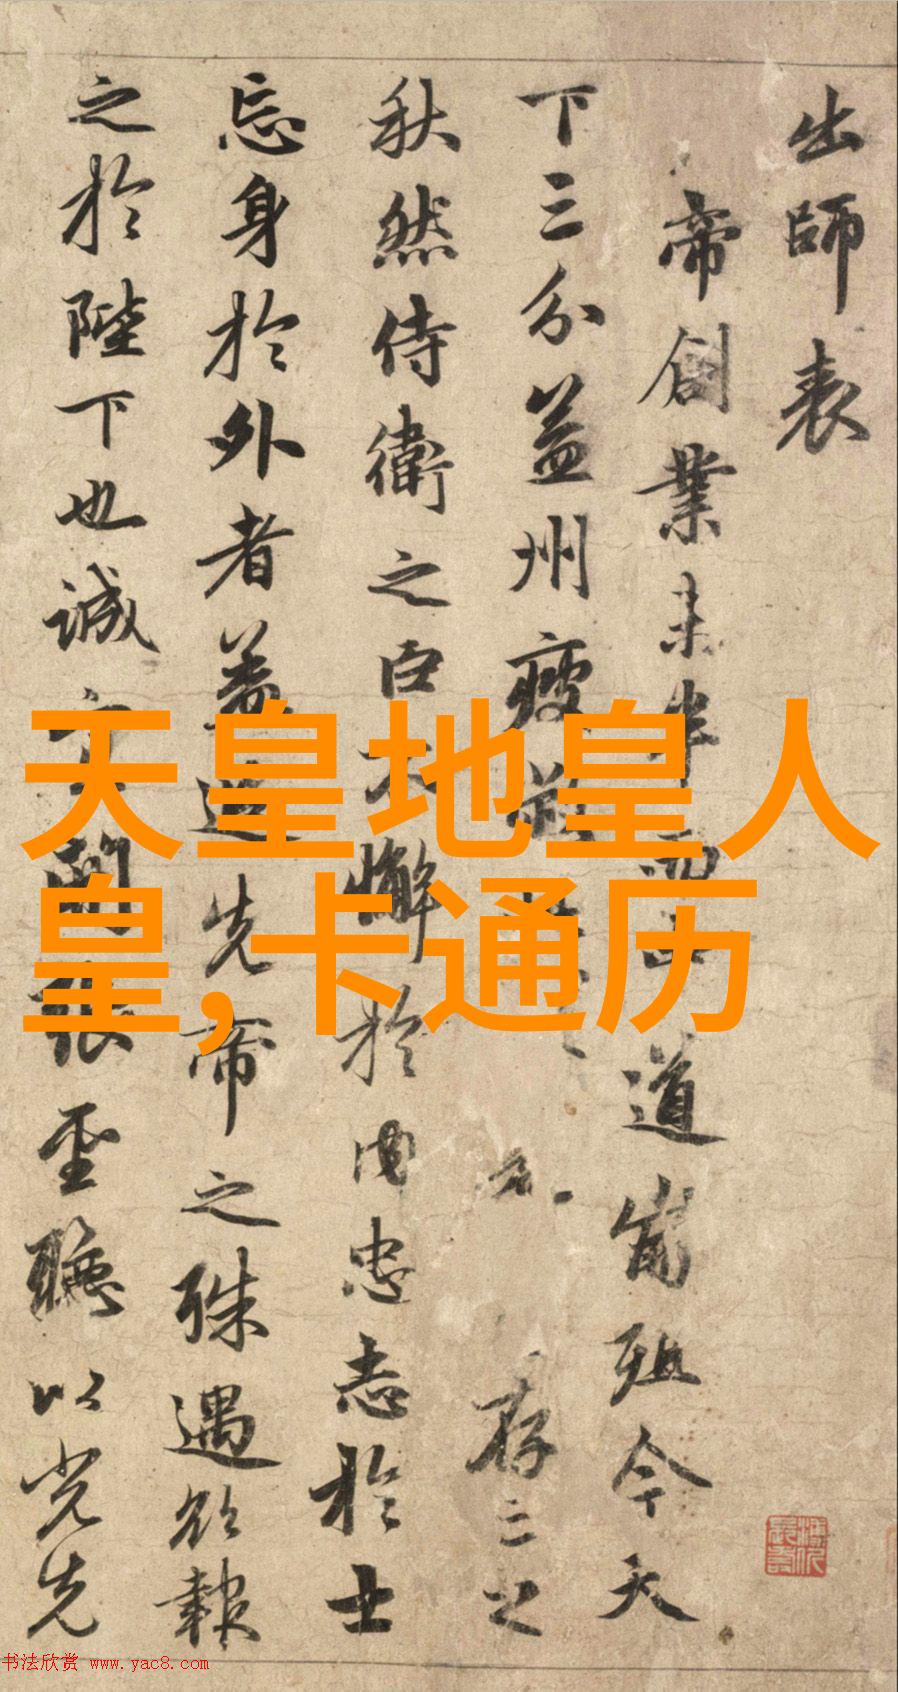 出師表
帝創業未半而中道崩殂今天
下三分益州疲存之
秋然侍衛之臣不懈於內忠志於士
忘身於外者蓋追先帝之殊遇欲報
之於陛下也誠宜開張聖聽以光先
天皇地皇人
皇,卡通历
书法欣赏 www.yac8.com